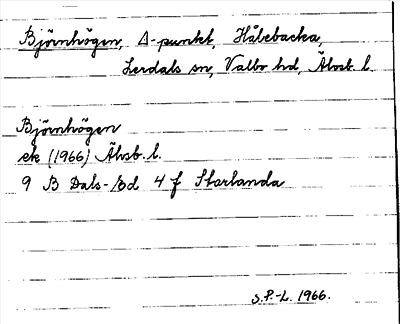 Björnhögen, Δ-punkt, Håbebacka,
Lerdals sn, Valbo hd, Älvsb. l.
Björnhögen
ek (1966) Älvsb. l.
9 B Dals-Ed 4 f Storlanda
S.P.-L. 1966.